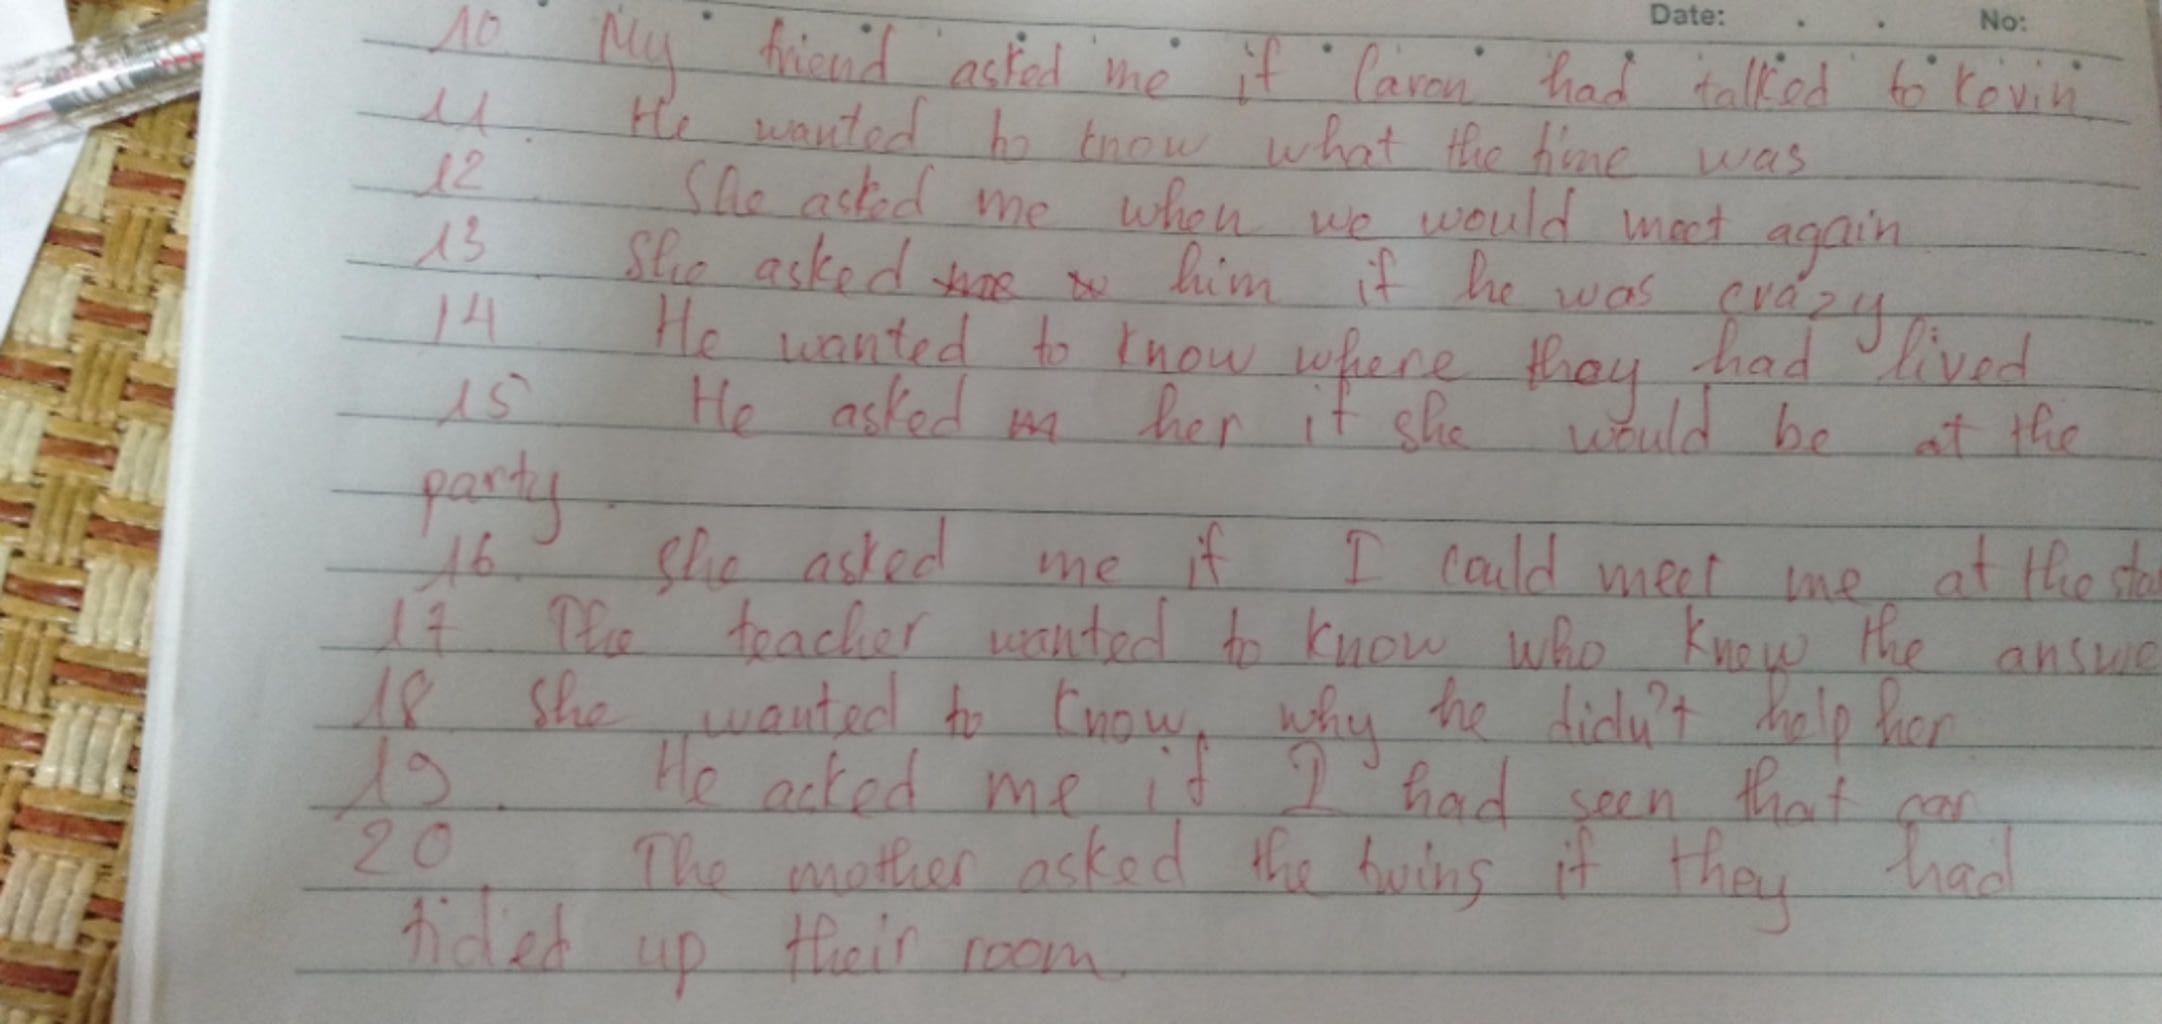 Date: No:
10 My friend asked me if Caron had talked to Kevin
11. He wanted to know what the time was
12. She asked me when we would meet again
13. She asked him if he was crazy
14 He wanted to know where they had lived
15 He asked her if she would be at the
party.
16. She asked me if I could meet me at the sta
17 The teacher wanted to know who knew the answe
18 She wanted to know, why he didn't help her
19. He asked me if I had seen that car
20. The mother asked the twins if they had
tidied up their room.